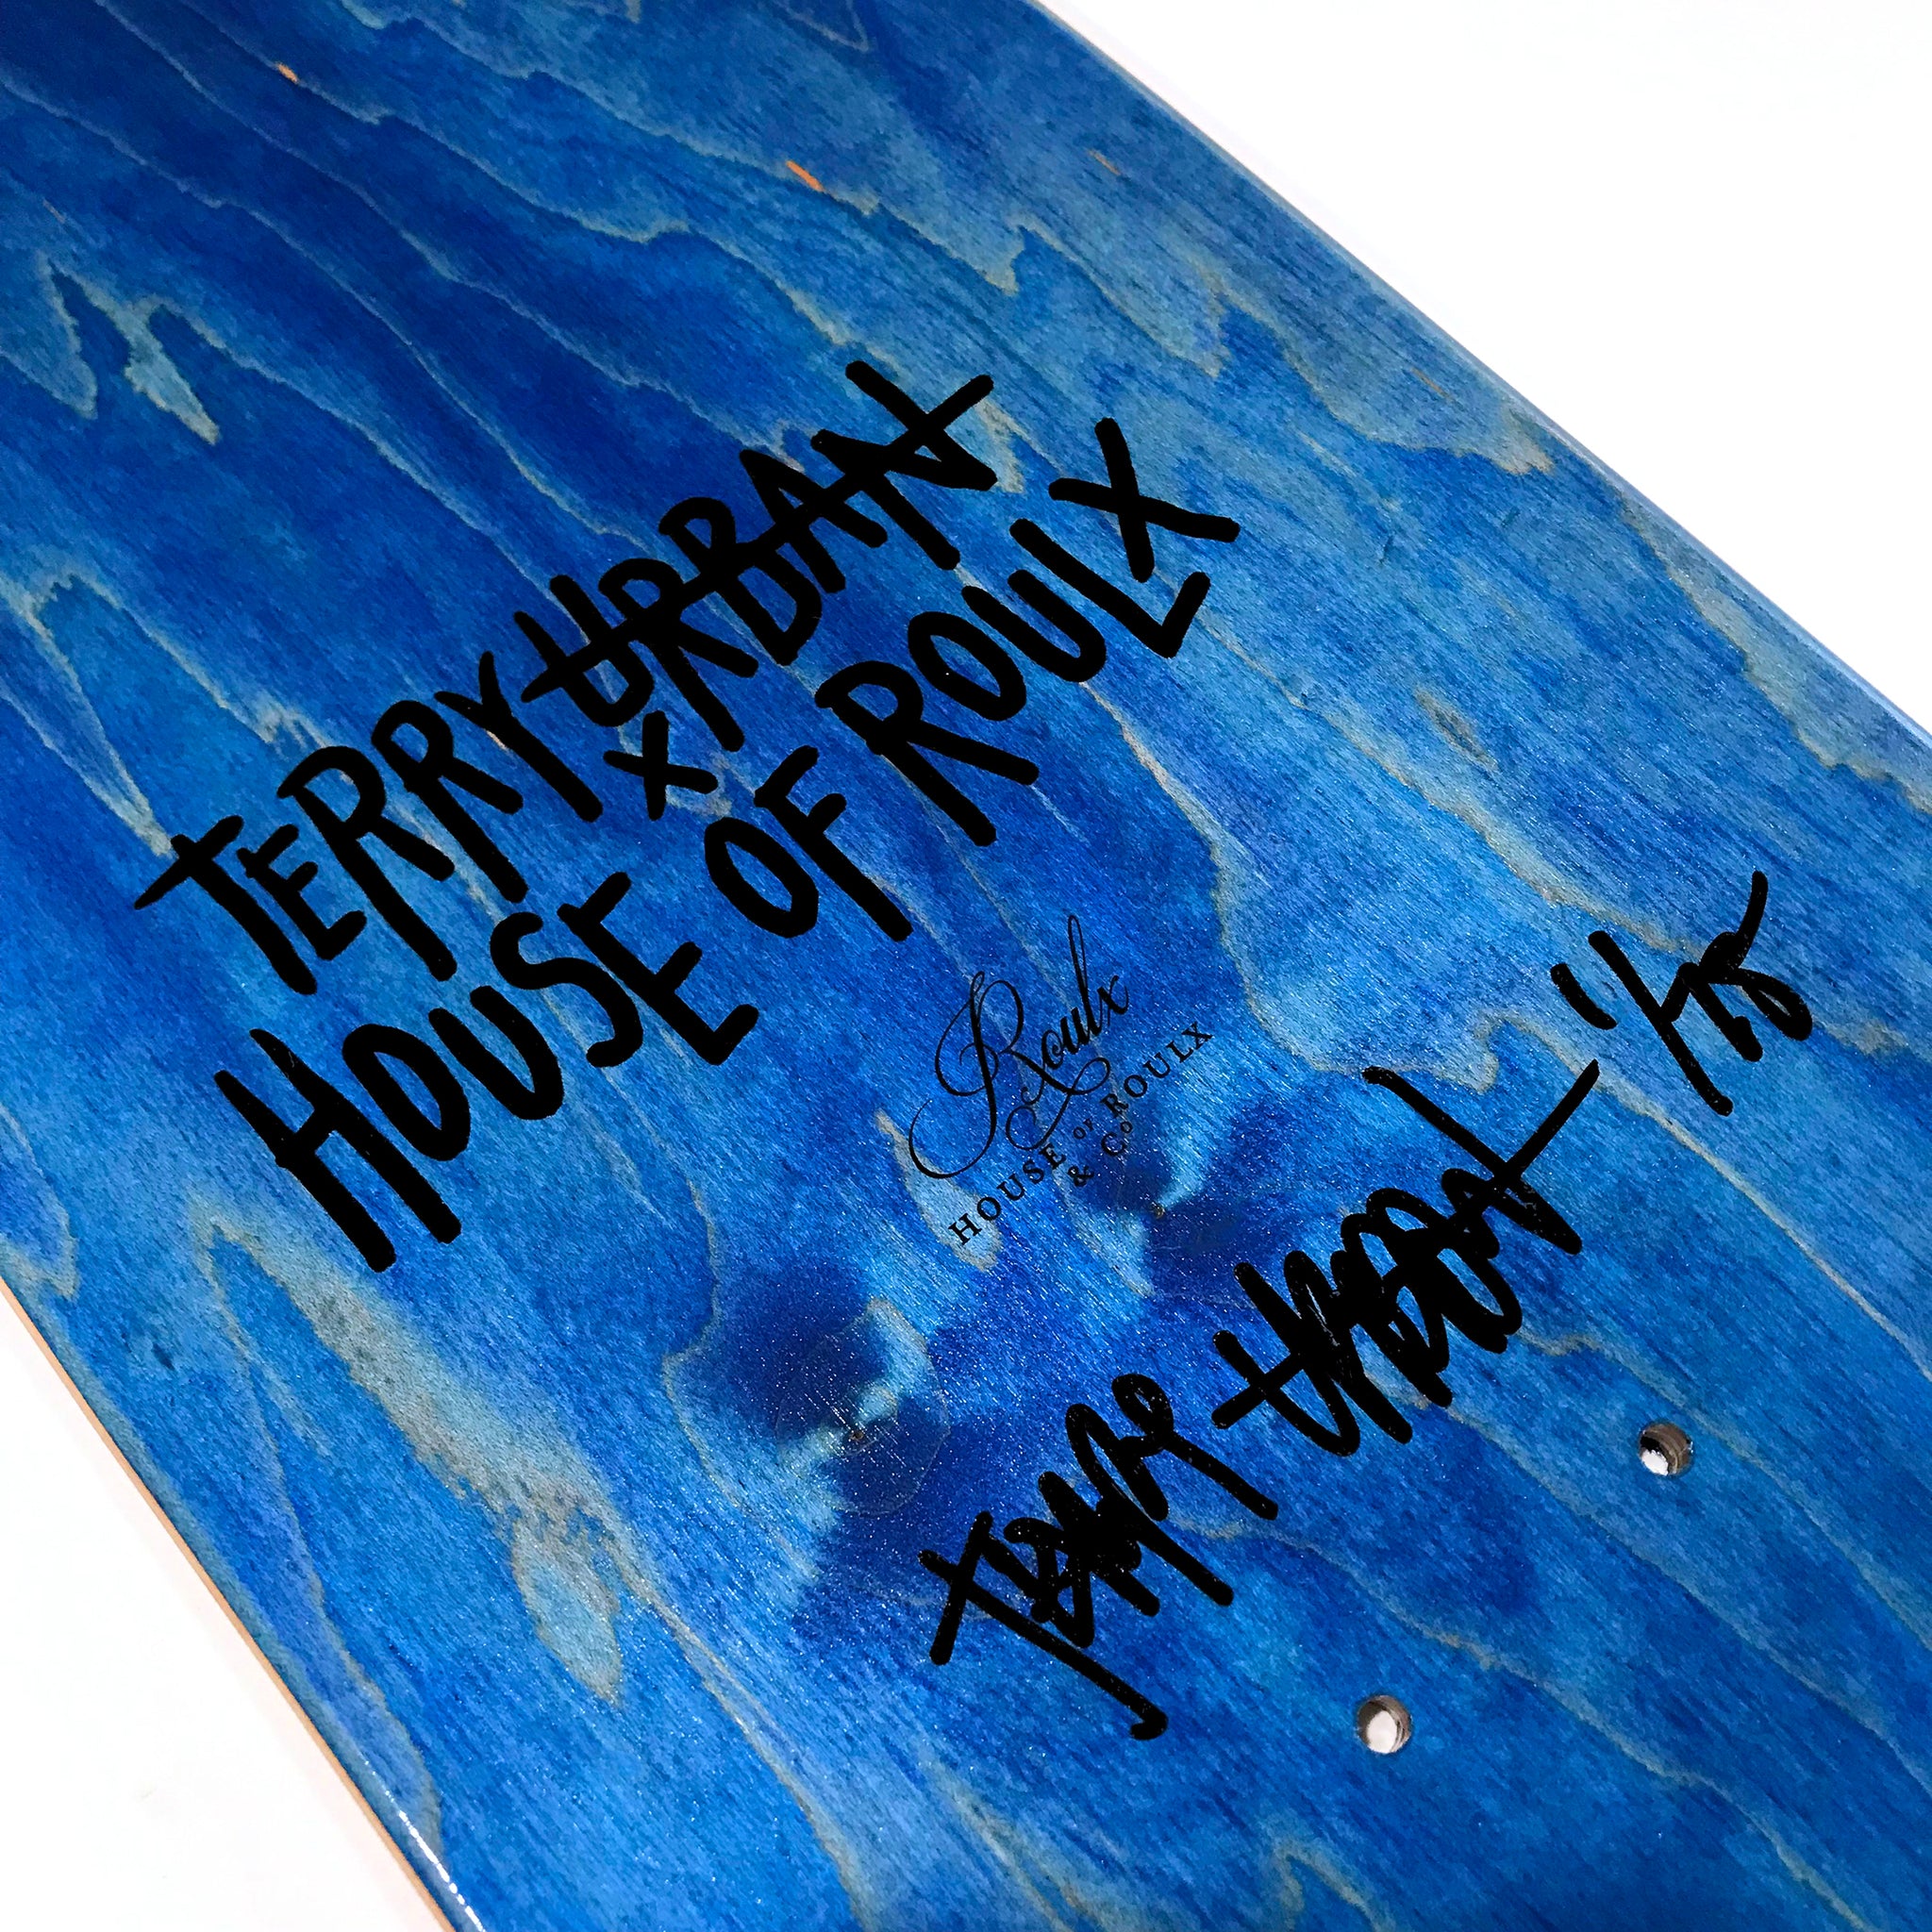 TERRY URBAN
x
HOUSE OF ROULX
Roulx
HOUSE OF ROULX
& Co
TERRY URBAN